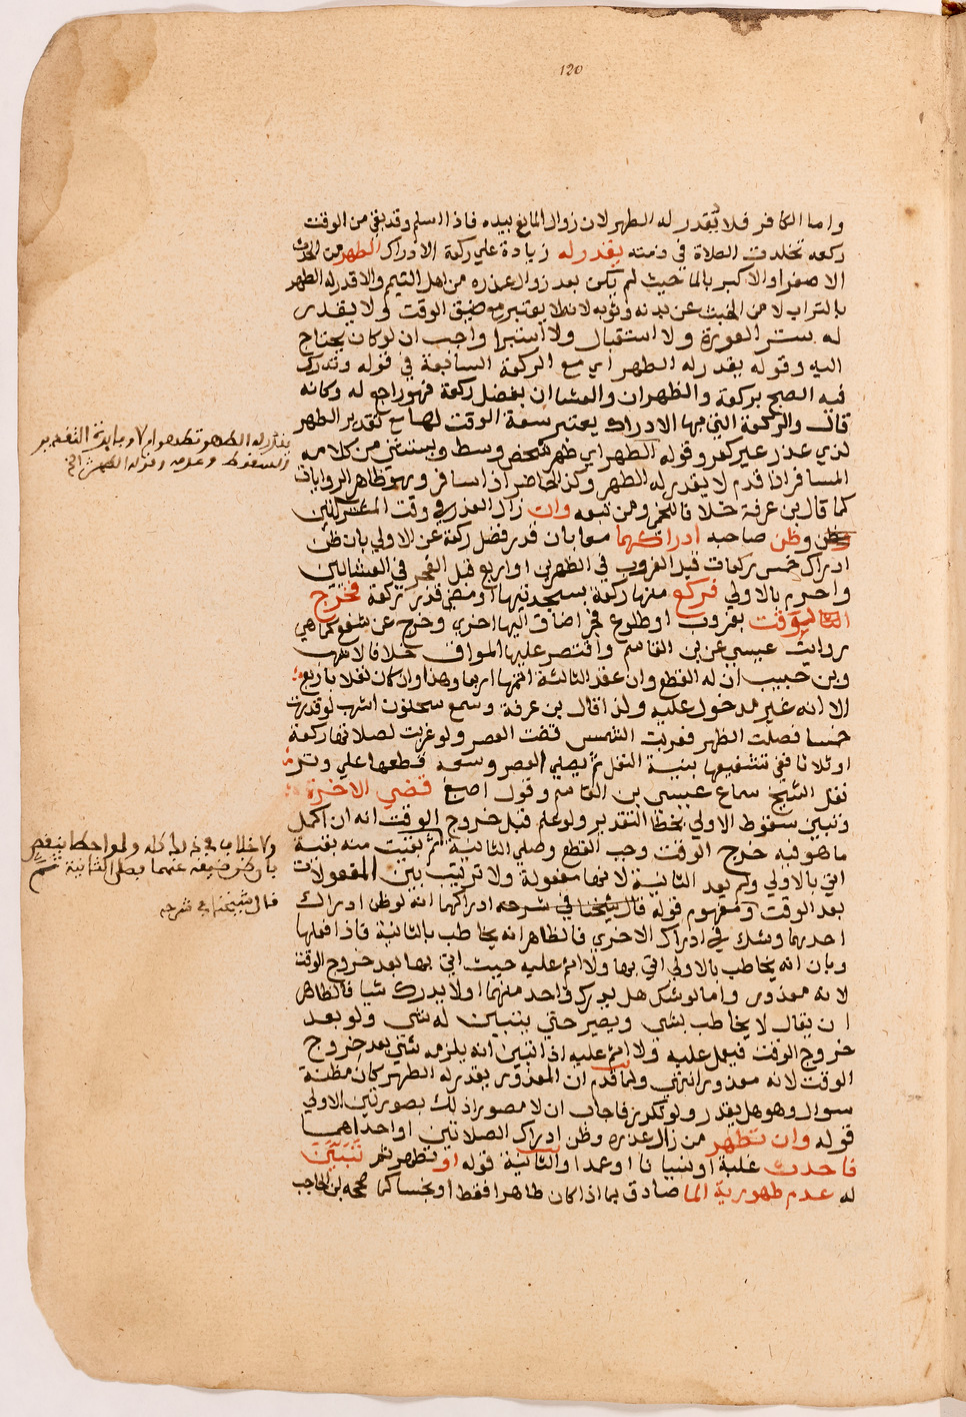 120
واما الكافر فلا يقدر له الطهر لان زوال المانع بيده فاذا اسلم وقد بقي من الوقت
ركعة تخلدت الصلاة في ذمته يقدر له زيادة علي ركعة الادراك الطهر من الحدث
الاصغر او الاكبر بالما حيث لم يكن بعد زوال عذره من اهل التيمم والا قدر له الطهر
بالتراب لا من الخبث عن بدنه وثوبه لانه لا يعتبر مع ضيق الوقت ولا يقدر
له ستر العورة ولا استقبال ولا استبرا واجب ان لو كان يحتاج
اليه وقوله يقدر له الطهر اي مع الركعة السابقة في قوله وتدرك
فيه الصبح بركعة والظهران والعشاان بفضل ركعة فهو راجع له وكانه
قال والركعة التي بها الادراك يعتبر سعة الوقت لها مع تقدير الطهر
لذي عذر غير كفر وقوله الطهر اي طهر شخص وسط ويستثني من كلامه
المسافر اذا قدم لا يقدر له الطهر وكذا الحاضر اذا سافر وهو ظاهر الروايات
كما قال بن عرفة خلافا للخمي ومن تبعه وان زال العذر في وقت المشتركتين
وظن صاحبه ادراكهما معا بان قدر فضل ركعة عن الاولي بان ظن
ادراك خمس ركعات قبل الغروب في الظهرين او اربع قبل الفجر في العشائين
واحرم بالاولي فركع منها ركعة بسجدتيها او مضي قدر ركعة فخرج
الوقت بغروب او طلوع فجر اضاف اليها اخري وخرج عن شفع كما هي
رواية عيسي عن بن القاسم واقتصر عليها المواق خلافا لاشهب
وبن حبيب ان له القطع وان عقد الثالثة اتمها اربعا وهذا وان كان نفلا باربع
الا انه غير مدخول عليه ولذا قال بن عرفة وسمع سحنون اشهب لو قدرت
خمسا فصلت الظهر فغربت الشمس قضت العصر ولو غربت لصلاتها ركعة
او ثلاثا ففي تشفيعها بنية النفل ثم يصلي العصر وسعه قطعها علي وتر
نقل الشيخ سماع عيسي بن القاسم وقول اصبغ قضي الاخرة
وتبين سقوط الاولي بخطا التقدير ولو علم قبل خروج الوقت انه ان اكمل
ما هو فيه خرج الوقت وجب القطع وصلي الثانية ثم بقيت منه بقية
اتي بالاولي ولم يعد الثانية لانها مفعولة ولا ترتيب بين المفعولات
بعد الوقت ومفهوم قوله قال شيخنا في شرحه ادراكهما انه لو ظن ادراك
احديهما وشك في ادراك الاخري فالظاهر انه يخاطب بالثانية فاذا فعلها
وبان انه يخاطب بالاولي اتي بها ولا اثم عليه حيث اتي بها بعد خروج الوقت
لانه معذور واما لو شك هل يدرك واحد منهما او لا يدرك شيا فالظاهر
ان يقال لا يخاطب بشي ويصير حتي يتبين له شي ولو بعد
خروج الوقت فيعمل عليه ولا اثم عليه اذا تبين انه يلزمه شي بعد خروج
الوقت لانه معذور انتهي ولما قدم ان المعذور يقدر له الطهر كان مظنة
سوال وهو هل يقدر ولو تكرر فاجاب ان لا مصورا ذلك بصورتين الاولي
قوله وان تطهر من زال عذره وظن ادراك الصلاتين او احداهما
فاحدث غلبة او نسيانا او عمدا والثانية قوله او تطهر ثم تبين
له عدم طهورية الما صادق بما اذا كان طاهرا فقط او نجسا كما صححه بن الحاجب
يقدر له الطهر
والسقوط وعدمه وقوله الطهر الخ
ولا خلاف في ذلك كله ولو اخطا
قال شيخنا في شرحه